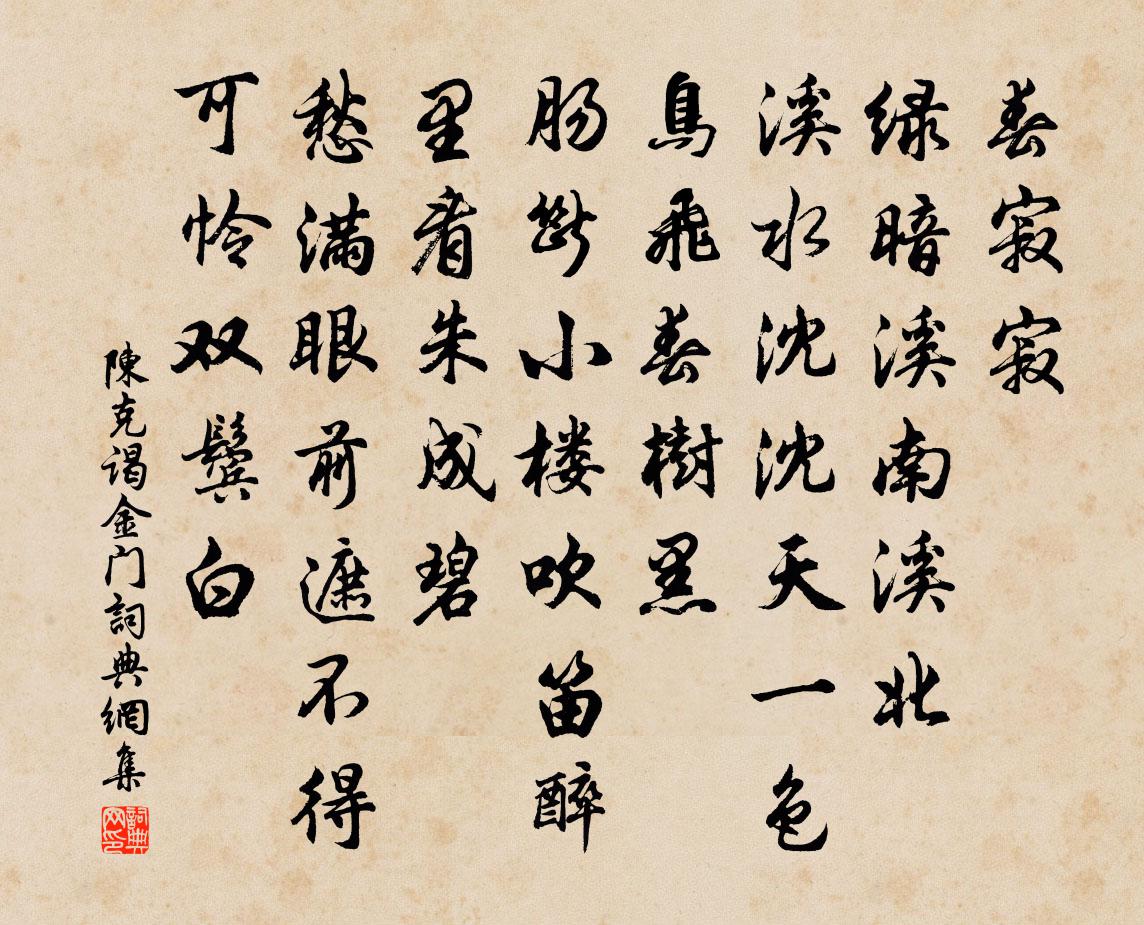 春寂寂
绿暗溪南溪北
溪水沈沈天一色
鳥飛春樹黑
肠断小楼吹笛醉
里看朱成碧
愁满眼前遮不得
可怜双鬓白
陳克谒金门詞典網集
詞典网印